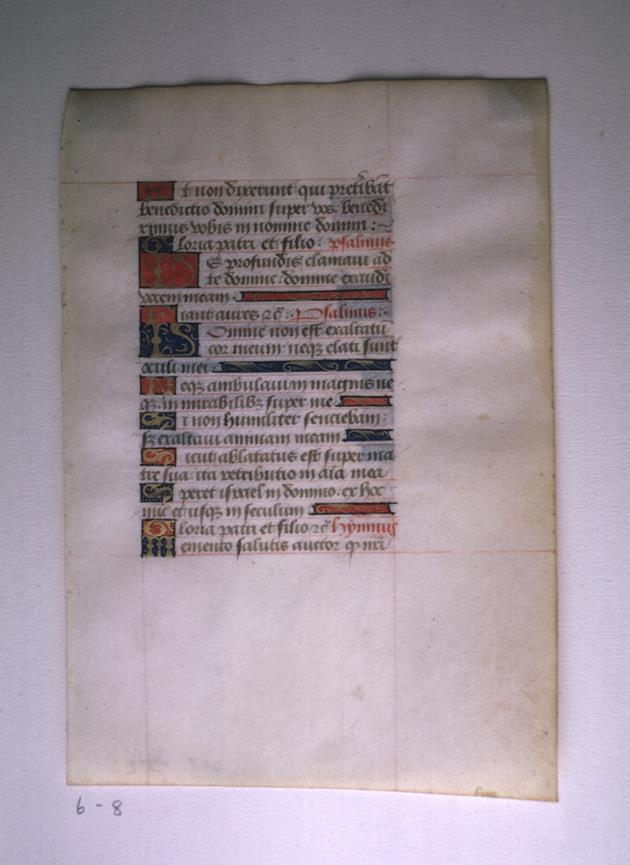 Et non dixerunt qui pretibāt
benedictio domini super vos. benedi
ximus vobis in nomine domini:
Gloria patri et filio. psalmus.
DE profundis clamavi ad
te domine: domine exaudi
vocem meam
Fiant aures &c: Psalmus:
DOmine non est exaltatū
cor meum: neqz elati sunt
oculi mei
Neqz ambulavi in magnis ne
qz. in mirabilibz super me
Si non humiliter sentiebam:
sz exaltavi animam meam
Sicut ablatatus est super ma
tre sua. ita retributio in aīa mea
Speret israel in domino. ex hoc
nunc et usqz in seculum
Gloria patri et filio &c Hymnus
Memento salutis auctor qz nrī
6 - 8